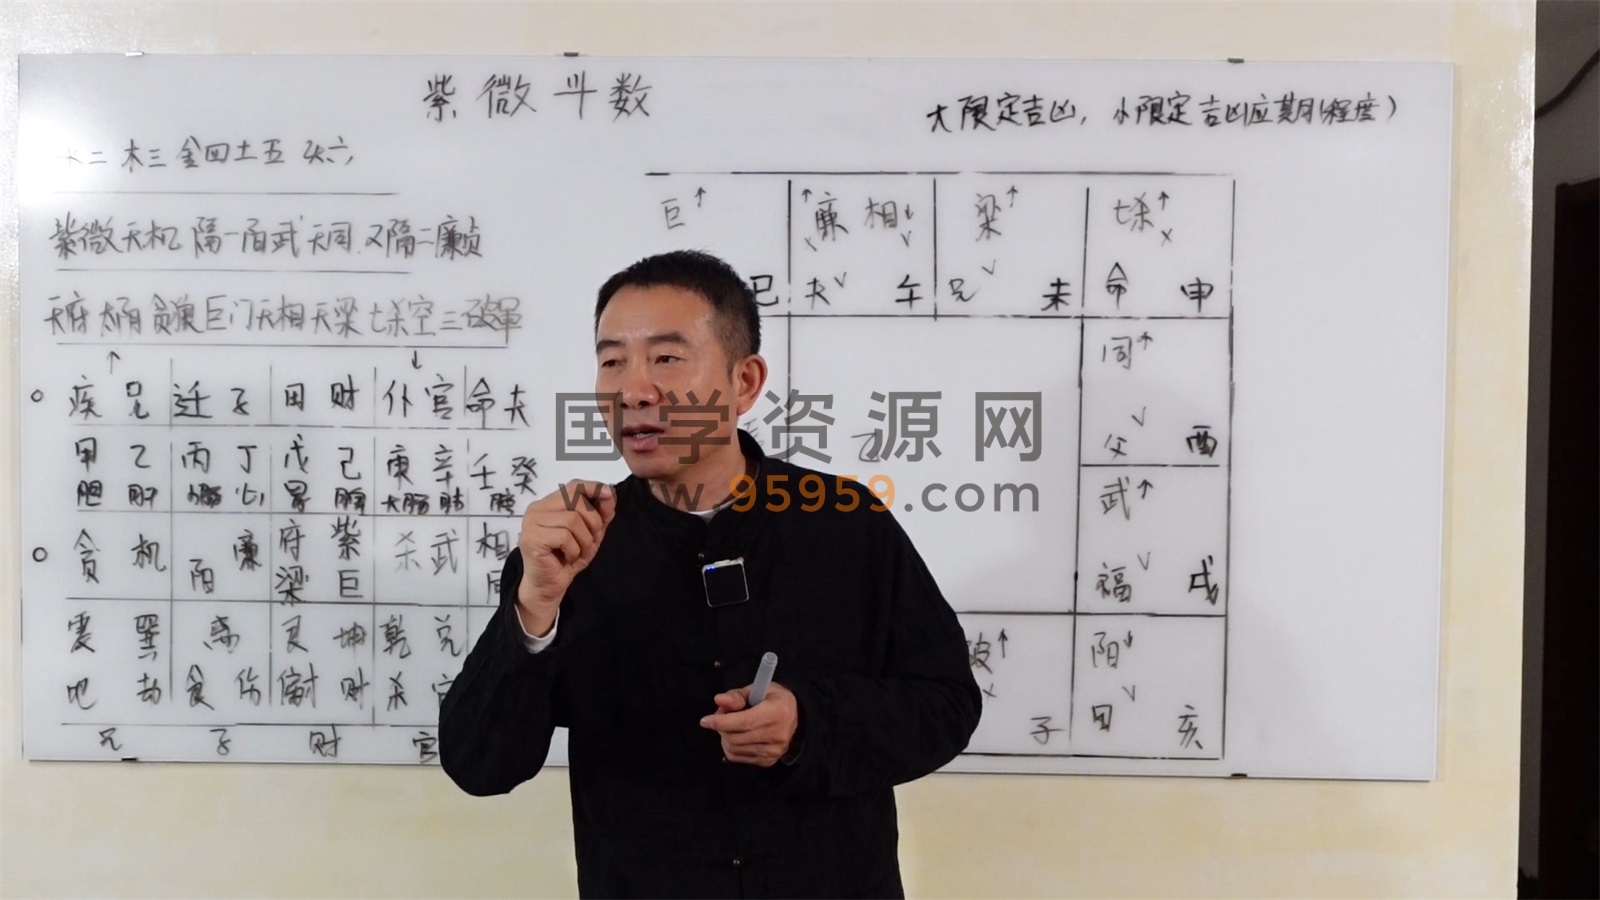 紫微斗数
大限定吉凶，小限定吉凶应期(程度)
二 木三 金四 土五 火六
紫微天机 隔一阳武天同 又隔二廉贞
天府太阴贪狼巨门天相天梁七杀空三破军
↑ ↓
疾 兄 迁 子 田 财 仆 官 命 夫
甲 乙 丙 丁 戊 己 庚 辛 壬 癸
胆 肝 小肠 心 胃 脾 大肠 肺
贪 机 阳 廉 府 梁 紫 巨 杀 武 相 同
震 巽 离 艮 坤 乾 兑
地 劫 食 伤 财 杀 官
兄 子 财 官
巨↑
巳
↑廉 相↓
× ∨
夫∨ 午
梁↑
兄∨ 未
七杀↑
×
命 申
同↑
父∨ 酉
武↑
福∨ 戌
破↑
×
子
阳↓
田∨ 亥
国学资源网
www.95959.com